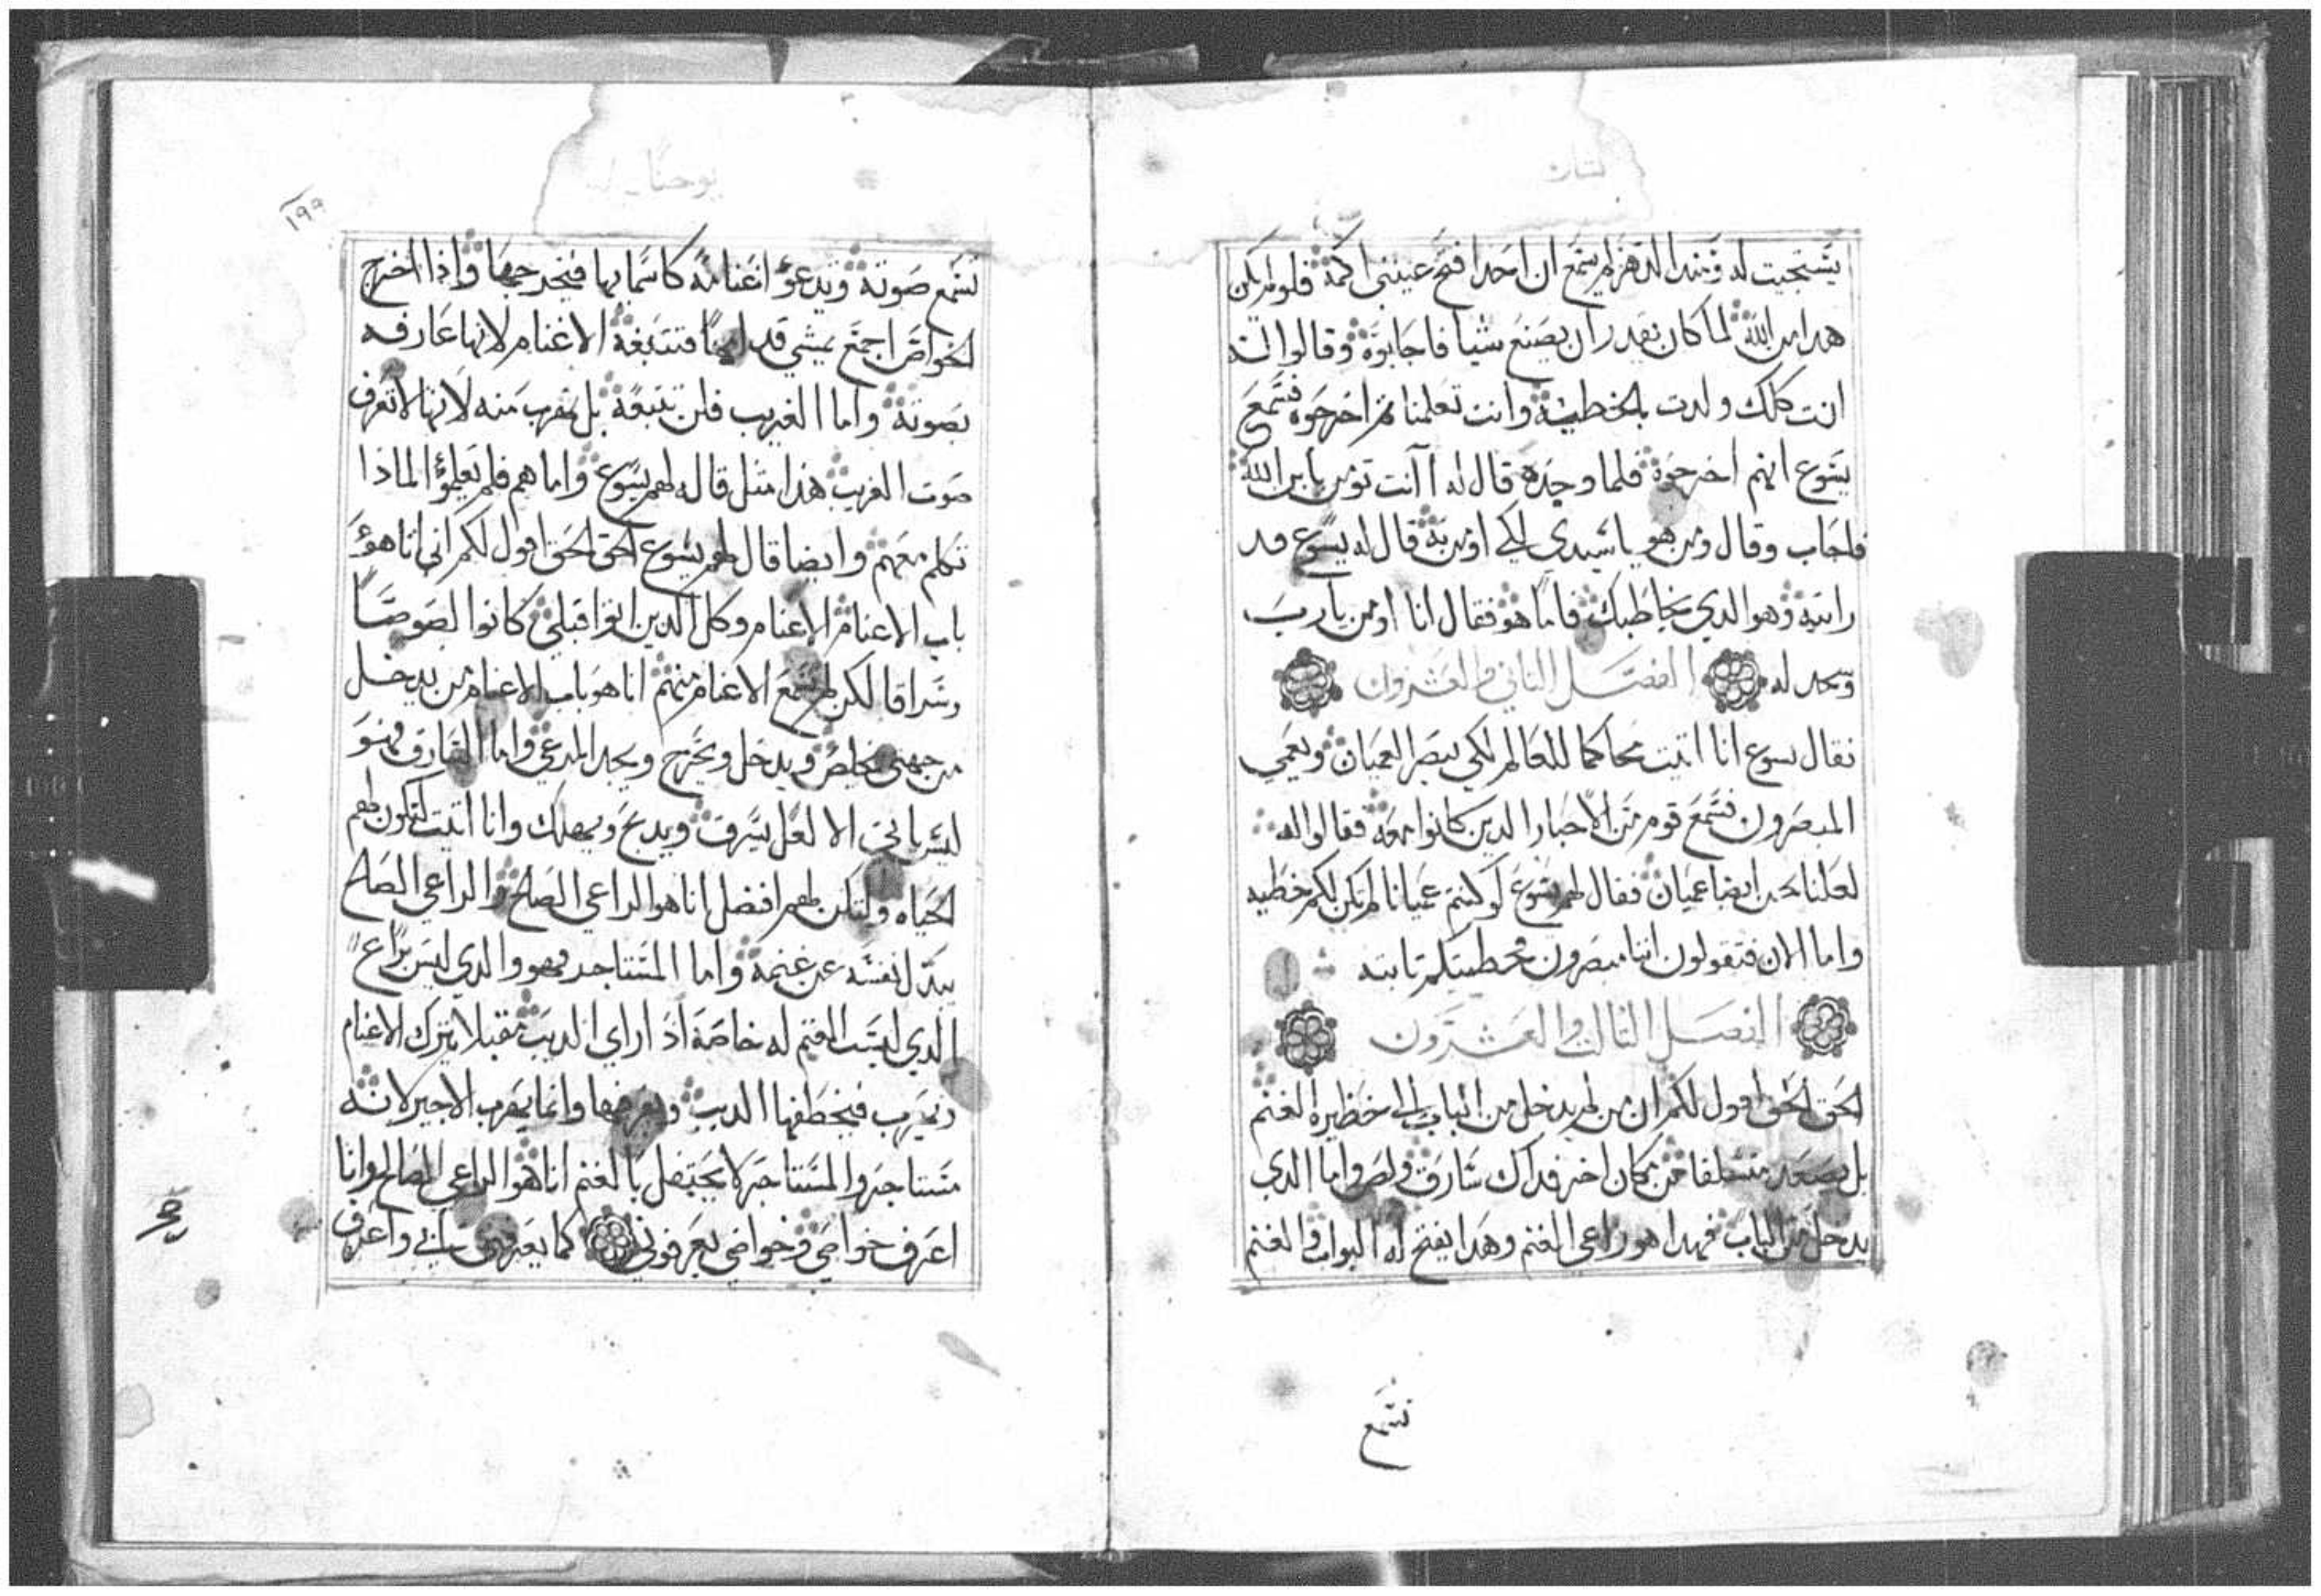 يستجيب له ومند الدهر لم يسمع ان احدا فتح عينني اكمة فلو لم يكن
هدا من الله لما كان يقدر ان يصنع شيا فاجابوه وقالوا له
انت كلك ولدت بالخطية وانت تعلمنا ثم اخرجوه فسمع
يسوع انهم اخرجوه فلما وجده قال له اانت تومن بابن الله
فاجاب وقال ومن هو يا سيدي لكي اومن به قال له يسوع قد
رايته وهو الدي يخاطبك فاما هو فقال انا اومن يا رب
وسجد له الفصل الثاني والعشرون
فقال يسوع انا اتيت محاكما للعالم لكي يبصر العميان ويعمي
المبصرون فسمع قوم من الاحبار الدين كانوا معه فقالوا له
لعلنا نحن ايضا عميان فقال لهم يسوع لو كنتم عميانا لم تكن لكم خطيه
واما الان فتقولون اننا مبصرون فخطيتكم تابته
الفصل الثالث والعشرون
الحق الحق اقول لكم ان من لم يدخل من الباب الى حظيرة الغنم
بل يصعد متسلقا من مكان اخر فداك سارق ولص واما الدي
يدخل من الباب فهدا هو راعي الغنم وهدا يفتح له البواب والغنم
تسمع
يوحنا
١٩٩
تسمع صوته ويدعو اغنامه كاسمايها فيخرجها واذا اخرج
الخواص اجمع يمشي قدامها فتتبعه الاغنام لانها عارفه
بصوته واما الغريب فلن تتبعه بل تهرب منه لانها لا تعرف
صوت الغريب هذا مثل قاله لهم يسوع واما هم فلم يعلموا لماذا
تكلم معهم وايضا قال لهم يسوع الحق الحق اقول لكم اني انا هو
باب الاغنام الاغنام وكل الدين اتوا قبلي كانوا لصوصا
وسراقا لكن لم تسمع الاغنام منهم انا هو باب الاغنام من يدخل
من جهتي يخلص ويدخل ويخرج ويجد المرعي واما السارق فهو
ليس ياتي الا لعل يسرق ويدبح ويهلك وانا اتيت لتكون لهم
الحياه ولتكن لهم افضل انا هو الراعي الصلح والراعي الصلح
يبدل نفسه عن غنمه واما المستاجر فهو والدي ليس براع
الدي ليست الغنم له خاصة اذا راي الديب مقبلا يترك الاغنام
ويهرب فيخطفها الديب وانما يهرب الاجير لانه
مستاجر والمستاجر لا يحتفل بالغنم انا هو الراعي الصالح وانا
اعرف خواصي وخواصي يعرفوني كما يعرفني ابي واعرف